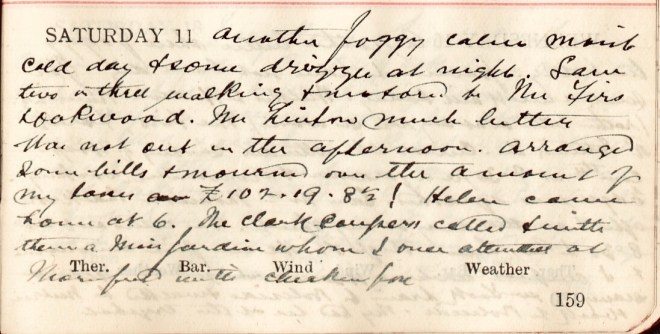 SATURDAY 11 Another foggy calm moist
cold day & some drizzle at night. Saw
two or three walking & motored to The Firs
Lookwood. Mr Hinton much better
Was not out in the afternoon. Arranged
some bills & mourned over the amount of
my taxes £102.19.8½! Helen came
home at 6. The Clark Coupers called & with
them a Miss Jardine whom I once attended at
Ther. Bar. Wind Weather
with chickenpox
159